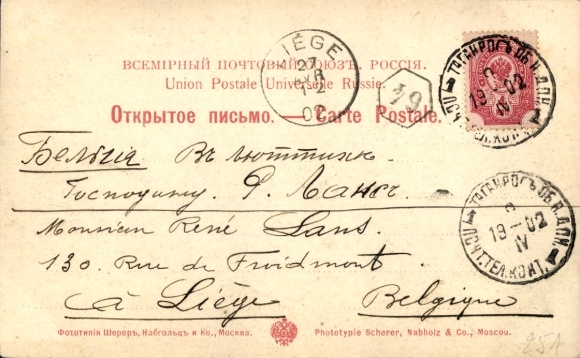 LIÉGE
27
AVR
12
02
ВСЕМІРНЫЙ ПОЧТОВЫЙ СОЮЗЪ. РОССІЯ.
Union Postale Universelle Russie.
79
ТАГАНРОГЪ ОБ. В. ДОН.
19 - 02
IV
ПОЧТ. ТЕЛ. КОНТ.
Открытое письмо. — Carte Postale.
Бельгія Въ Люттихъ
Господину Р. Лансъ
Monsieur René Lans.
130 Rue de Froidmont
à Liége Belgique
ТАГАНРОГЪ ОБ. В. ДОН.
19 - 02
IV
ПОЧТ. ТЕЛ. КОНТ.
Фототипія Шереръ, Набгольцъ и Ко., Москва.
Phototypie Scherer, Nabholz & Co., Moscou.
251